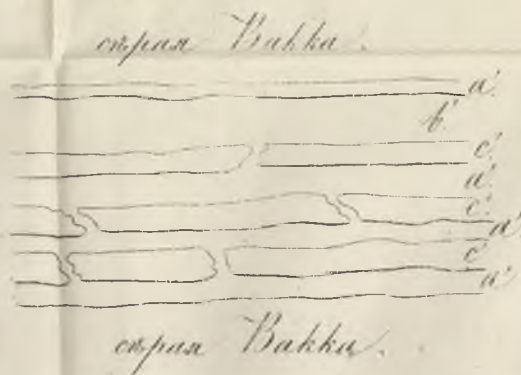 сѣрая Вакка.
a'.
b'.
c'.
a'.
c'.
a'
c'
a'.
сѣрая Вакка.